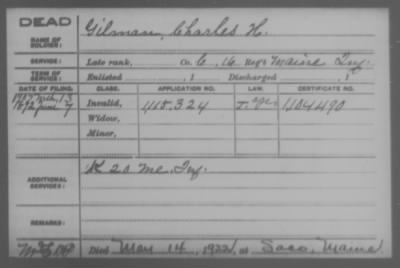 DEAD
NAME OF SOLDIER: Gilman, Charles H.
SERVICE: Late rank, Co. C, 16 Reg't Maine Inf.
TERM OF SERVICE: Enlisted , 1 Discharged , 1
DATE OF FILING. CLASS. APPLICATION NO. LAW. CERTIFICATE NO.
1892 June 7 Invalid, 1104490
Widow,
Minor,
ADDITIONAL SERVICES: K 20 Me. Inf.
REMARKS:
Died May 14, 1922, at Saco, Maine